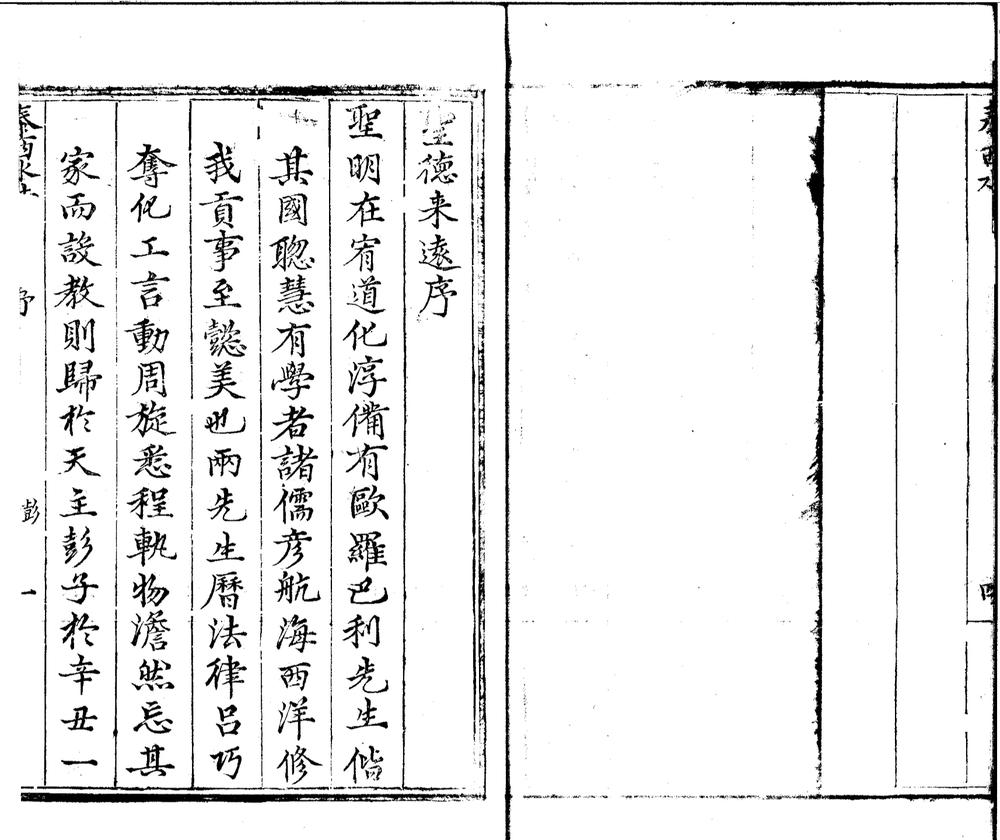 泰西水
四
聖德来遠序
聖明在宥道化淳備有歐羅巴利先生偕
其國聰慧有學者諸儒彦航海西洋修
我貢事至懿美也兩先生曆法律呂巧
奪化工言動周旋悉程軌物澹然忘其
家而設教則歸於天主彭子於辛丑一
泰西水法
序
彭
一